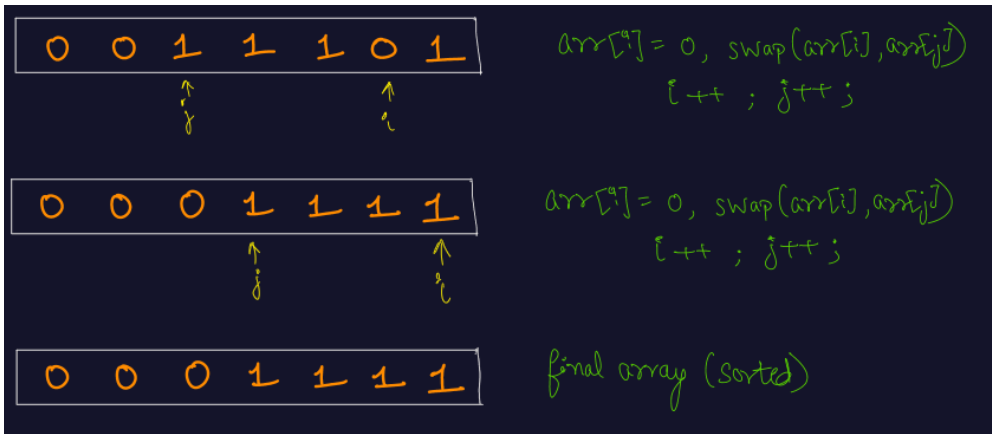 0 0 1 1 1 0 1
arr[i] = 0, swap(arr[i], arr[j])
i++ ; j++ ;
j i
0 0 0 1 1 1 1
arr[i] = 0, swap(arr[i], arr[j])
i++ ; j++ ;
j i
0 0 0 1 1 1 1
final array (sorted)